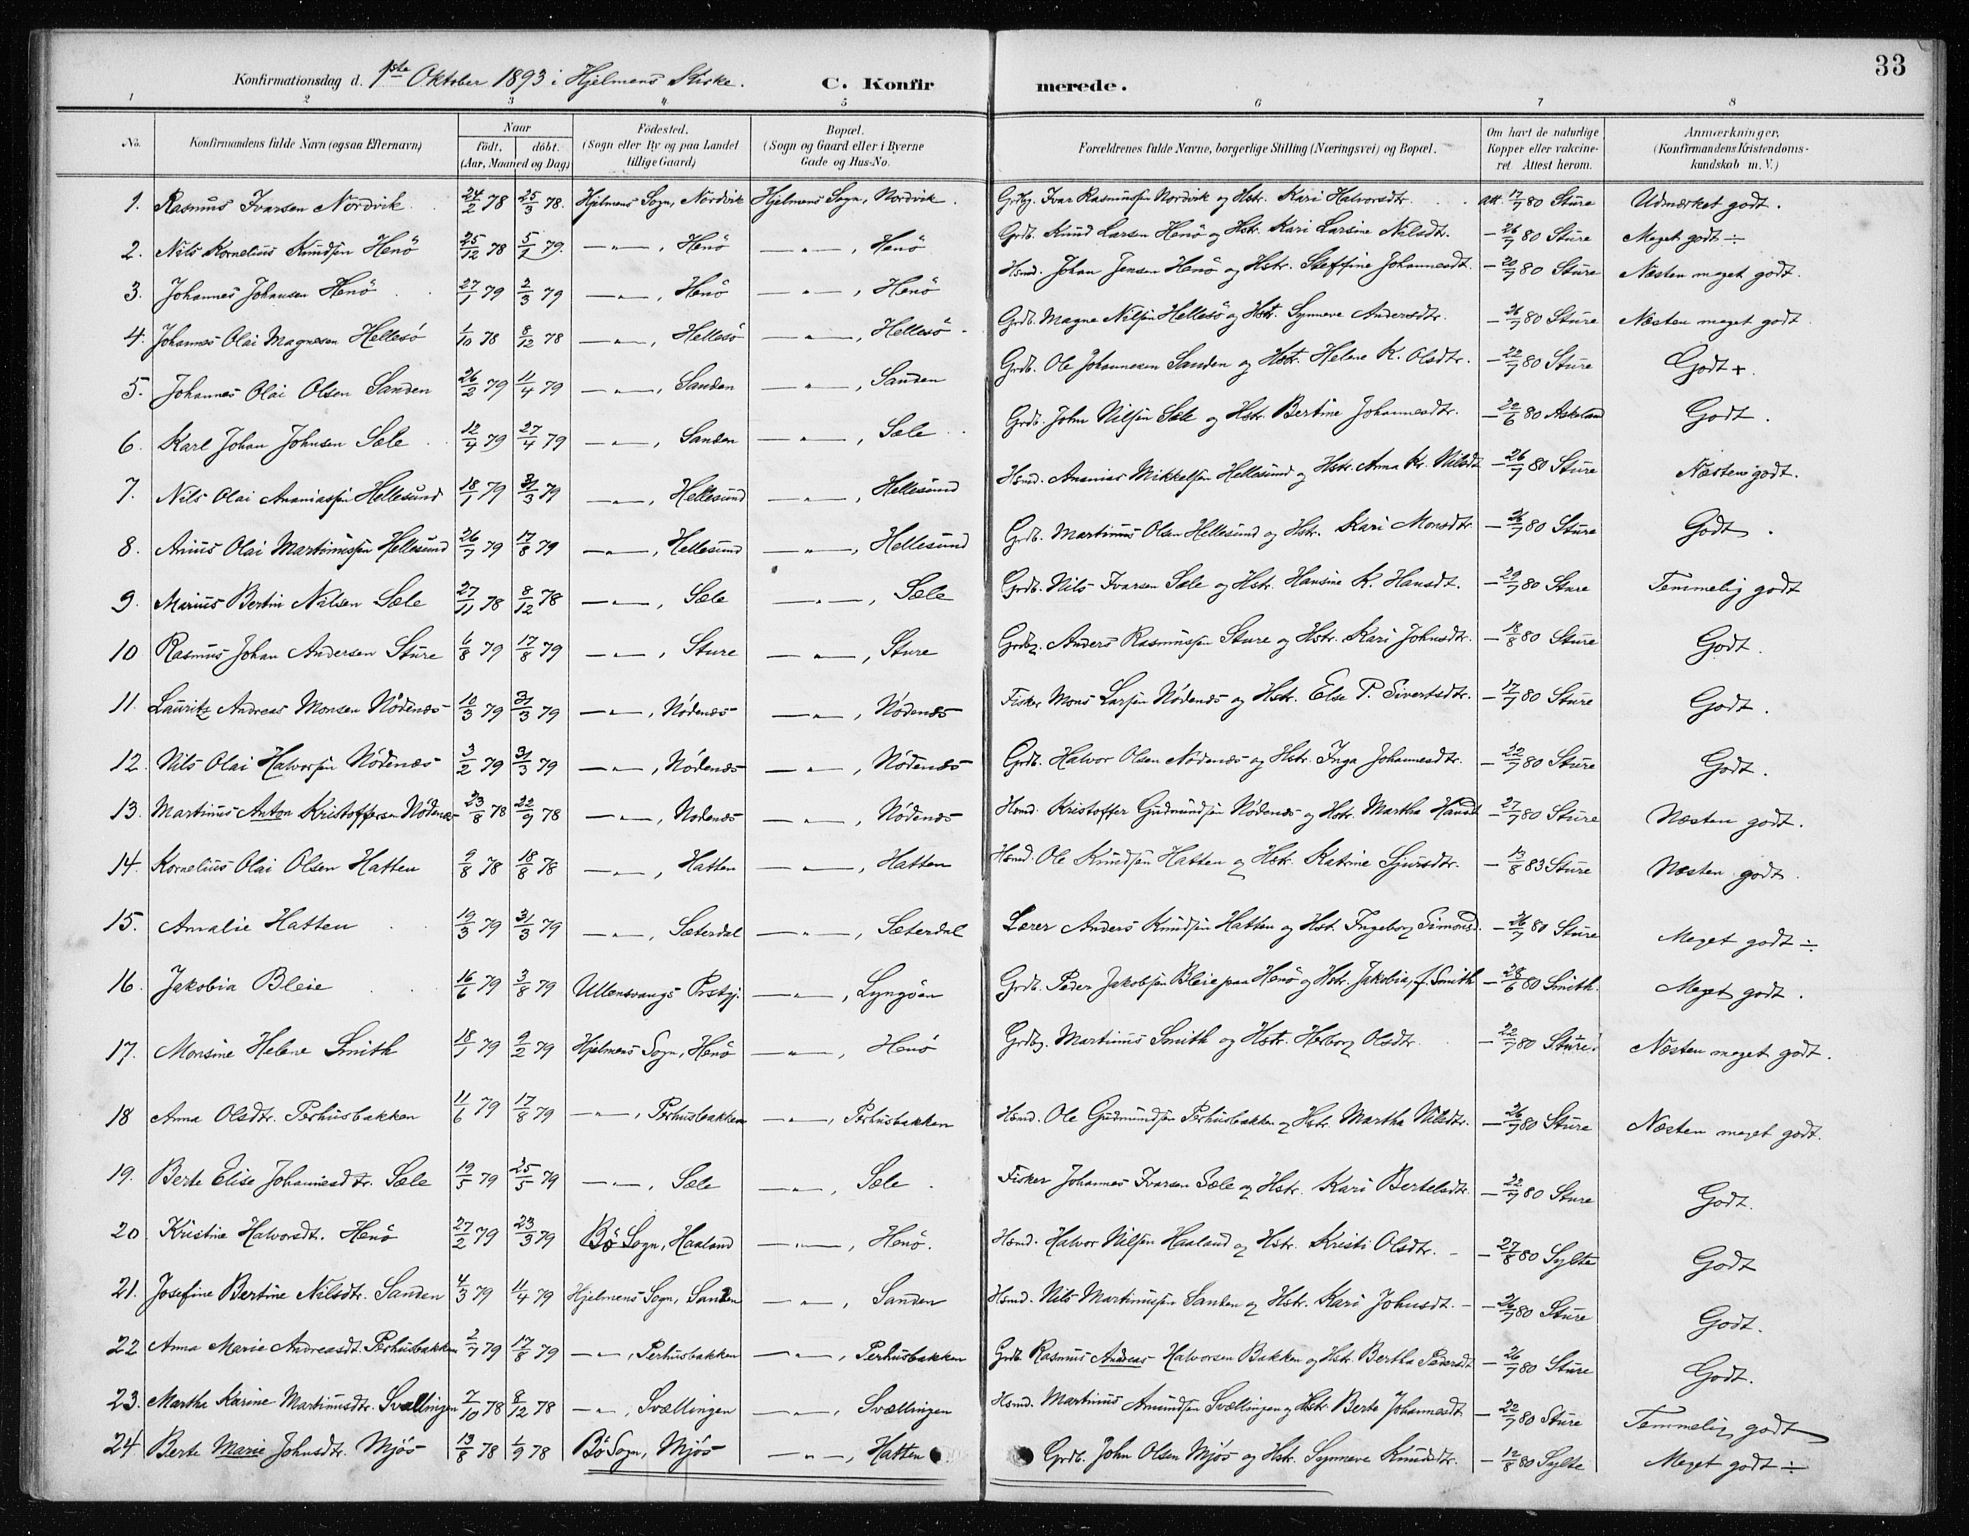 33
Konfirmationsdag d. 1ste Oktober 1893 i Hjelmens Kirke. C. Konfirmerede.
1 2 3 4 5 6 7 8
No. Konfirmandens fulde Navn (ogsaa Efternavn) Naar født, døbt. (Aar, Maaned og Dag) Fødested. (Sogn eller By og paa Landet tillige Gaard) Bopæl. (Sogn og Gaard eller i Byerne Gade og Hus-No. Forældrenes fulde Navne, borgerlige Stilling (Næringsvei) og Bopæl. Om havt de naturlige Kopper eller vakcineret. Attest herom. Anmærkninger. (Konfirmandens Kristendomskundskab m. V.)
1. Rasmus Ivarsen Nordvik 24/2 78 25/3 78. Hjelmens Sogn, Nordvik Hjelmens Sogn, Nordvik. Grdbg. Ivar Rasmussen Nordvik og Hstr. Kari Halvorsdtr. att. 17/7 80 Sture Udmærket godt.
2. Nils Kornelius Knudsen Henö 25/12 78 5/1 79. —"—, Henö —"—, Henö Grdb. Knud Larsen Henö og Hstr. Kari Larsine Nilsdt. — 26/7 80 Sture Meget godt ÷
3. Johannes Johansen Henö 27/1 79 2/3 79 —"—, Henö —"—, Henö Hsmd. Johan Jensen Henö og Hstr. Steffine Johannesdt. — 20/7 80 Sture Næsten meget godt.
4. Johannes Olai Magnesen Hellesö 1/10 78 8/12 78 —"—, Hellesö —"—, Hellesö. Grdb. Magne Nilsen Hellesö og Hstr. Synneve Andersdtr. — 26/7 80 Sture Næsten meget godt
5. Johannes Olai Olsen Sanden 26/2 79 11/4 79 —"—, Sanden —"—, Sanden Grdb. Ole Johannesen Sanden og Hstr. Helene K. Olsdtr. — 22/7 80 Sture Godt +.
6. Karl Johan Johnsen Sæle 12/4 79 27/4 79 —"—, Sanden —"—, Sæle Grdb. John Nilsen Sæle og Hstr. Bertine Johannesdtr. — 22/6 80 Askeland Godt.
7. Nils Olai Ananiassen Hellesund 18/1 79 31/3 79 —"—, Hellesund —"—, Hellesund Hsmd. Ananias Mikkelsen Hellesund og Hstr. Anna Kr. Nilsdt — 26/7 80 Sture Næsten godt.
8. Anius Olai Martinussen Hellesund 26/7 79 17/8 79 —"—, Hellesund —"—, Hellesund Grdb. Martinus Olsen Hellesund og Hstr. Kari Monsdtr — 26/7 80 Sture Godt.
9. Marius Bertin Nilsen Sæle 27/11 78 8/12 78 —"—, Sæle —"—, Sæle Grdb. Nils Ivarsen Sæle og Hstr. Hansine K. Hansdt. — 22/7 80 Sture Temmelig godt
10 Rasmus Johan Andersen Sture 6/8 79 17/8 79 —"—, Sture —"—, Sture Grdbg. Anders Rasmussen Sture og Hstr. Kari Johnsdtr. — 18/8 80 Sture Godt.
11. Lauritz Andreas Monsen Nödenæs 10/3 79 31/3 79 —"—, Nödenæs —"—, Nödenæs Fisker Mons Larsen Nödenæs og Hstr. Else P. Sivertsdtr. — 17/7 80 Sture Godt.
12. Nils Olai Halvorsen Nödenæs 3/2 79 31/3 79 —"—, Nödenæs —"—, Nödenæs Grdb. Halvor Olsen Nödenæs og Hstr. Inga Johannesdtr. — 22/7 80 Sture Godt.
13. Martinus Anton Kristoffersen Nödenæs 23/8 78 22/9 78 —"—, Nodenæs —"—, Nödenæs Hsmd. Kristoffer Gudmundsen Nödenæs og Hstr. Martha Hansdt — 27/7 80 Sture Næsten godt.
14. Kornelius Olai Olsen Hatten 9/8 78 18/8 78 —"—, Hatten —"—, Hatten Hsmd. Ole Knudsen Hatten og Hstr. Katrine Sjursdtr. — 13/8 83 Sture Næsten godt.
15. Amalie Hatten 19/3 79 31/3 79 —"—, Sæterdal —"—, Sæterdal Lærer Anders Knudsen Hatten og Hst. Ingeborg Simonsd. — 26/7 80 Sture Meget godt ÷
16. Jakobia Bleie 16/6 79 3/8 79 Ullensvangs Prstgj. —"—, Lyngöen Grdb. Peder Jakobsen Bleie paa Henö og Hstr. Jakobia, f. Smith — 28/6 80 Smith. Meget godt.
17. Monsine Helene Smith 18/1 79 9/2 79 Hjelmens Sogn, Henö —"—, Henö Grdbg. Martinus Smith og Hstr. Herborg Olsdtr. — 22/7 80 Sture Næsten meget godt.
18 Anna Olsdtr. Perhusbakken 11/6 79 17/8 79 —"—, Perhusbakken —"—, Perhusbakken Hsmd. Ole Gudmundsen Perhusbakken og Hstr. Martha Nilsdtr. — 26/7 80 Sture Næsten meget godt.
19. Berte Elise Johannesdtr. Sæle 19/5 79 25/5 79 —"—, Sæle —"—, Sæle. Fisker Johannes Ivarsen Sæle og Hstr. Kari Bertelsdtr. — 22/7 80 Sture Godt.
20 Kristine Halvorsdt. Henö 27/2 79 23/3 79 Bö Sogn, Haaland —"—, Henö. Hsmd. Halvor Nilsen Haaland og Hstr. Kristi Olsdtr. — 27/8 80 Sylte Godt
21. Josefine Bertine Nilsdtr. Sanden 4/3 79 11/4 79 Hjelmens Sogn, Sanden —"—, Sanden Hsmd. Nils Martinussen Sanden og Hstr. Kari Johnsdt. — 26/7 80 Sture Godt.
22 Anna Marie Andreasdt. Perhusbakken 2/7 79 17/8 79 —"—, Perhusbakken —"—, Perhusbakken Grdb. Rasmus Andreas Halvorsen Bakken og Hstr. Bertha Pedersdt — 26/7 80 Sture Godt.
23. Martha Karine Martinusdt. Svællingen 7/10 78 8/12 78 —"—, Svællingen —"—, Svællingen Hsmd. Martinus Amundsen Svællingen og Hstr. Berte Johannesdt — 22/7 80 Sture Temmelig godt
24 Berte Marie Johnsdtr. Mjös 13/8 78 1/9 78 Bö Sogn, Mjös —"—, Hatten Grdb. John Olsen Mjös og Hstr. Synneve Knudsdtr — 12/8 80 Sylte Meget godt ÷